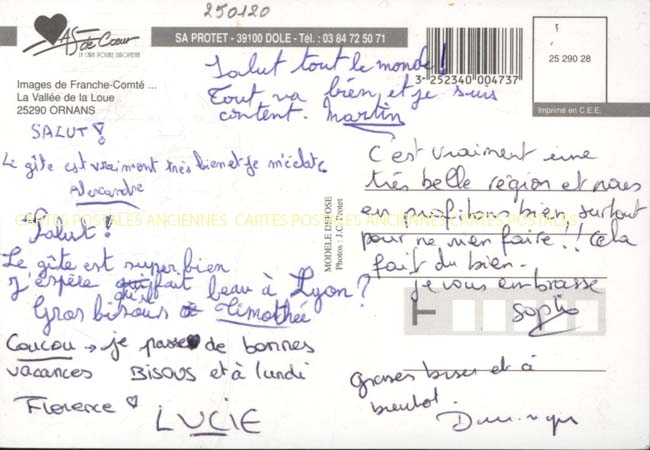 250120
AS de Cœur
LA CARTE POSTALE EUROPEENNE
SA PROTET - 39100 DOLE - Tél. : 03 84 72 50 71
3 252340 004737
25 290 28
Imprimé en C.E.E.
Images de Franche-Comté ...
La Vallée de la Loue
25290 ORNANS
Salut tout le monde !
Tout va bien, et je suis
content. Martin
SALUT !
Le gîte est vraiment très bien et je m'éclate
Alexandre
Salut !
Le gîte est super bien
J'espère qu'il fait beau à Lyon ?
Gros bisous Timothée
Coucou → je passe de bonnes
vacances BISOUS et à lundi
Florence
LUCIE
MODELE DEPOSE
Photos : J.C. Protet
C'est vraiment une
très belle région et nous
en profitons bien, surtout
pour ne rien faire !! Cela
fait du bien.
je vous embrasse
Sophie
Grosses bises et à
bientôt.
Dominique
CARTES POSTALES ANCIENNES CARTES POSTALES ANCIENNES CARTES POSTALES